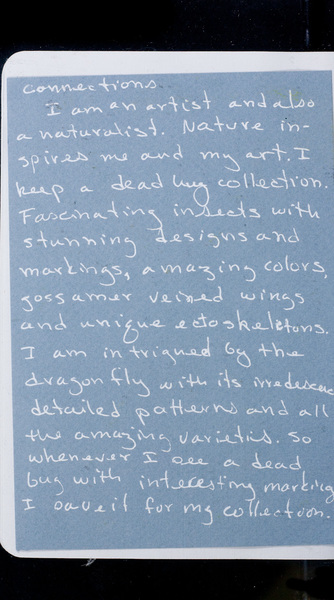 connections
I am an artist and also
a naturalist. Nature in-
spires me and my art. I
keep a dead bug collection.
Fascinating insects with
stunning designs and
markings, amazing colors,
gossamer veined wings
and unique ectoskeletons.
I am intrigued by the
dragonfly with its irredescen
detailed patterns and all
the amazing varieties. So
whenever I see a dead
bug with interesting marking
I save it for my collection.